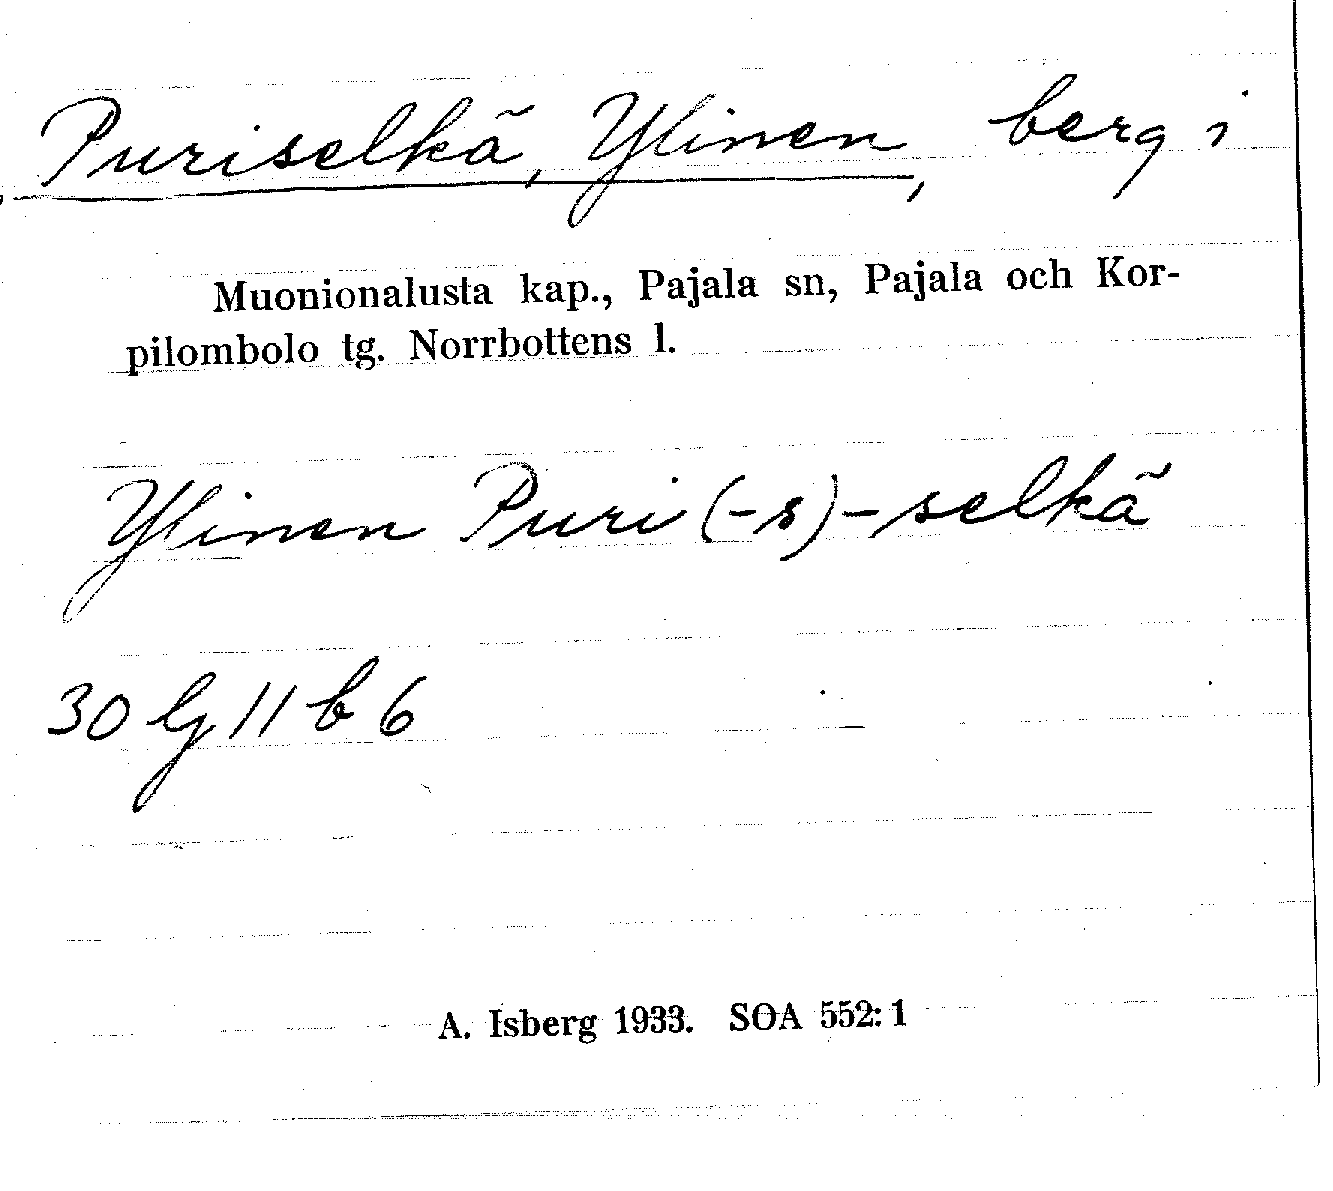 Puriselkä, Ylinen, berg i
Muonionalusta kap., Pajala sn, Pajala och Kor-
pilombolo tg. Norrbottens l.
Ylinen Puri(-s)-selkä
30 Cg 11 b 6
A. Isberg 1933. SOA 552:1